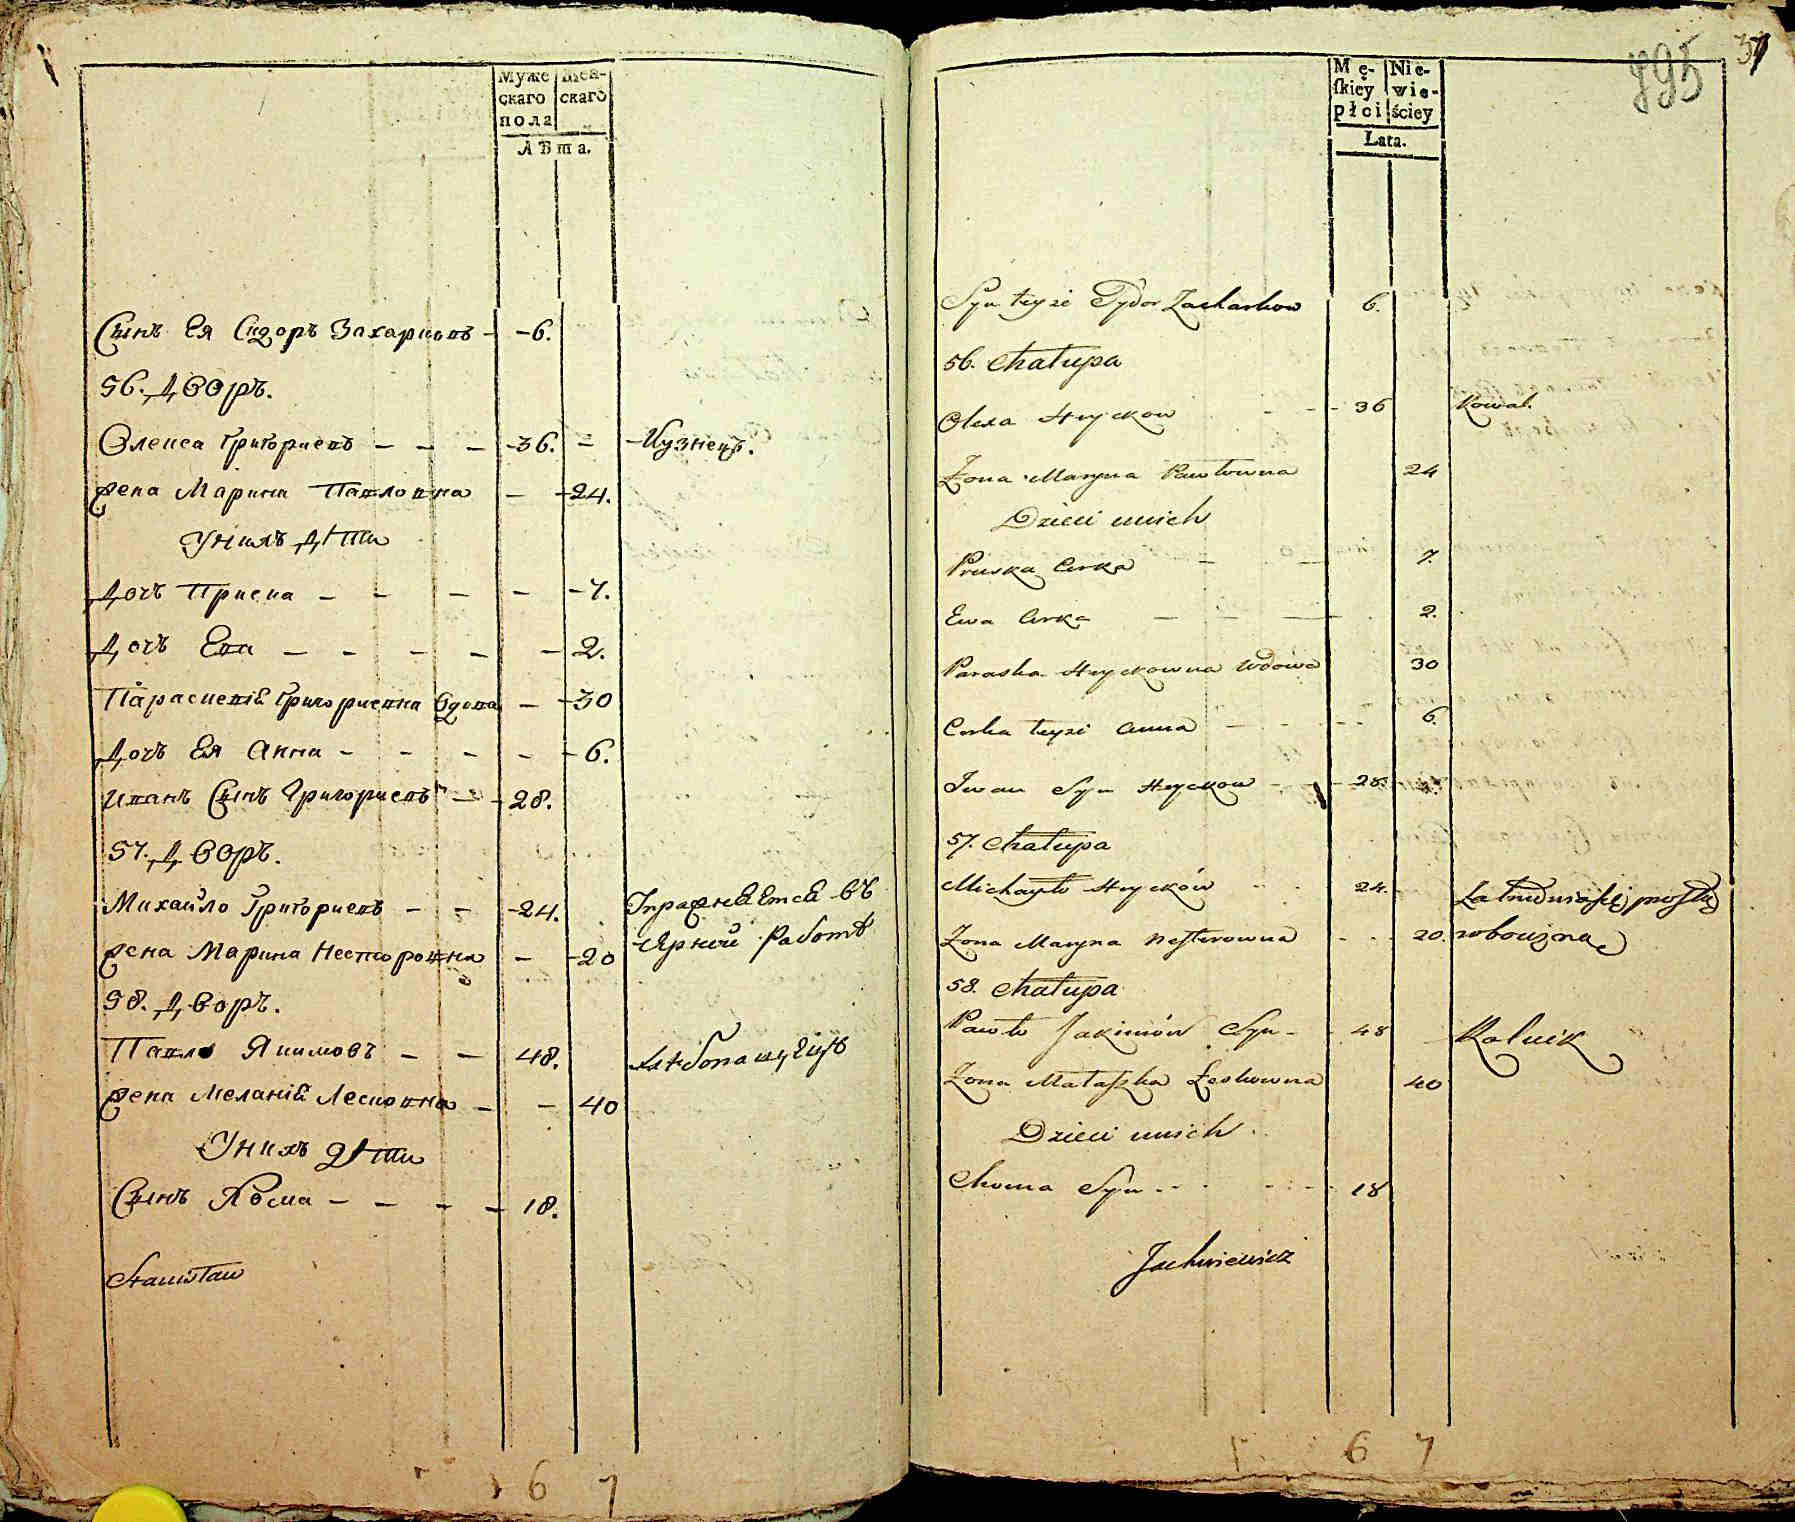 Муже скаго пола
Жен- скаго
Лѣта.
Сынъ Ея Сидоръ Захариевъ - - 6.
56. Дворъ.
Олекса Григориевъ - - - - 36. - - Кузнецъ.
Жена Марина Павловна - - 24.
У них дѣти
Дочь Приска - - - - - 7.
Дочь Ева - - - - - 2.
Параскевія Григориевна Вдова - - 30
Дочь Ея Анна - - - - - 6.
Иванъ Сынъ Григориевъ - - 28.
57. Дворъ.
Михайло Григориевъ - - - 24.
Упражняется въ
чорной работѣ
Жена Марина Нестеровна - - 20
58. Дворъ.
Павло Якимовъ - - 48. Хлѣбопашецъ
Жена Меланія Лесковна - - 40
У нихъ дѣти
Сынъ Хома - - - - 18.
Stanisław
895
37
Mę- skiey płci
Nie- wie- ściey
Lata.
Syn teyże Sydor Zacharkow 6.
56. Chałupa
Olexa Hryckow - - - 36 Kowal.
Żona Maryna Pawłowna 24
Dzieci unich
Pruska Curka - - 7.
Ewa Curka - - - 2.
Paraska Hryckowna Wdowa 30
Corka teyże Anna - - - - 6.
Iwan Syn Hryckow - - - 28.
57. Chałupa
Michayło Hryckow - - 24.
Zatrudnia się prostą
Żona Maryna Nesterowna - - - 20. robocizną
58. Chałupa
Pawło Jakimów Syn - - 48 Rolnik
Żona Małaszka Leskowna 40
Dzieci unich
Choma Syn - - - - - 18
Jachniewicz
6 7
6 7